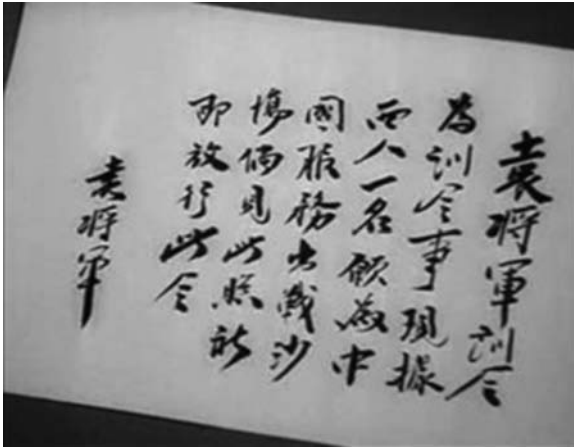 袁將軍訓令
為訓令事現據
西人一名願為中
國服務出戰沙
場倘見此照祈
即放行此令
袁將軍